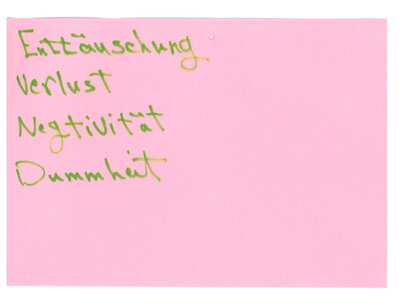 Enttäuschung
Verlust
Negtivität
Dummheit